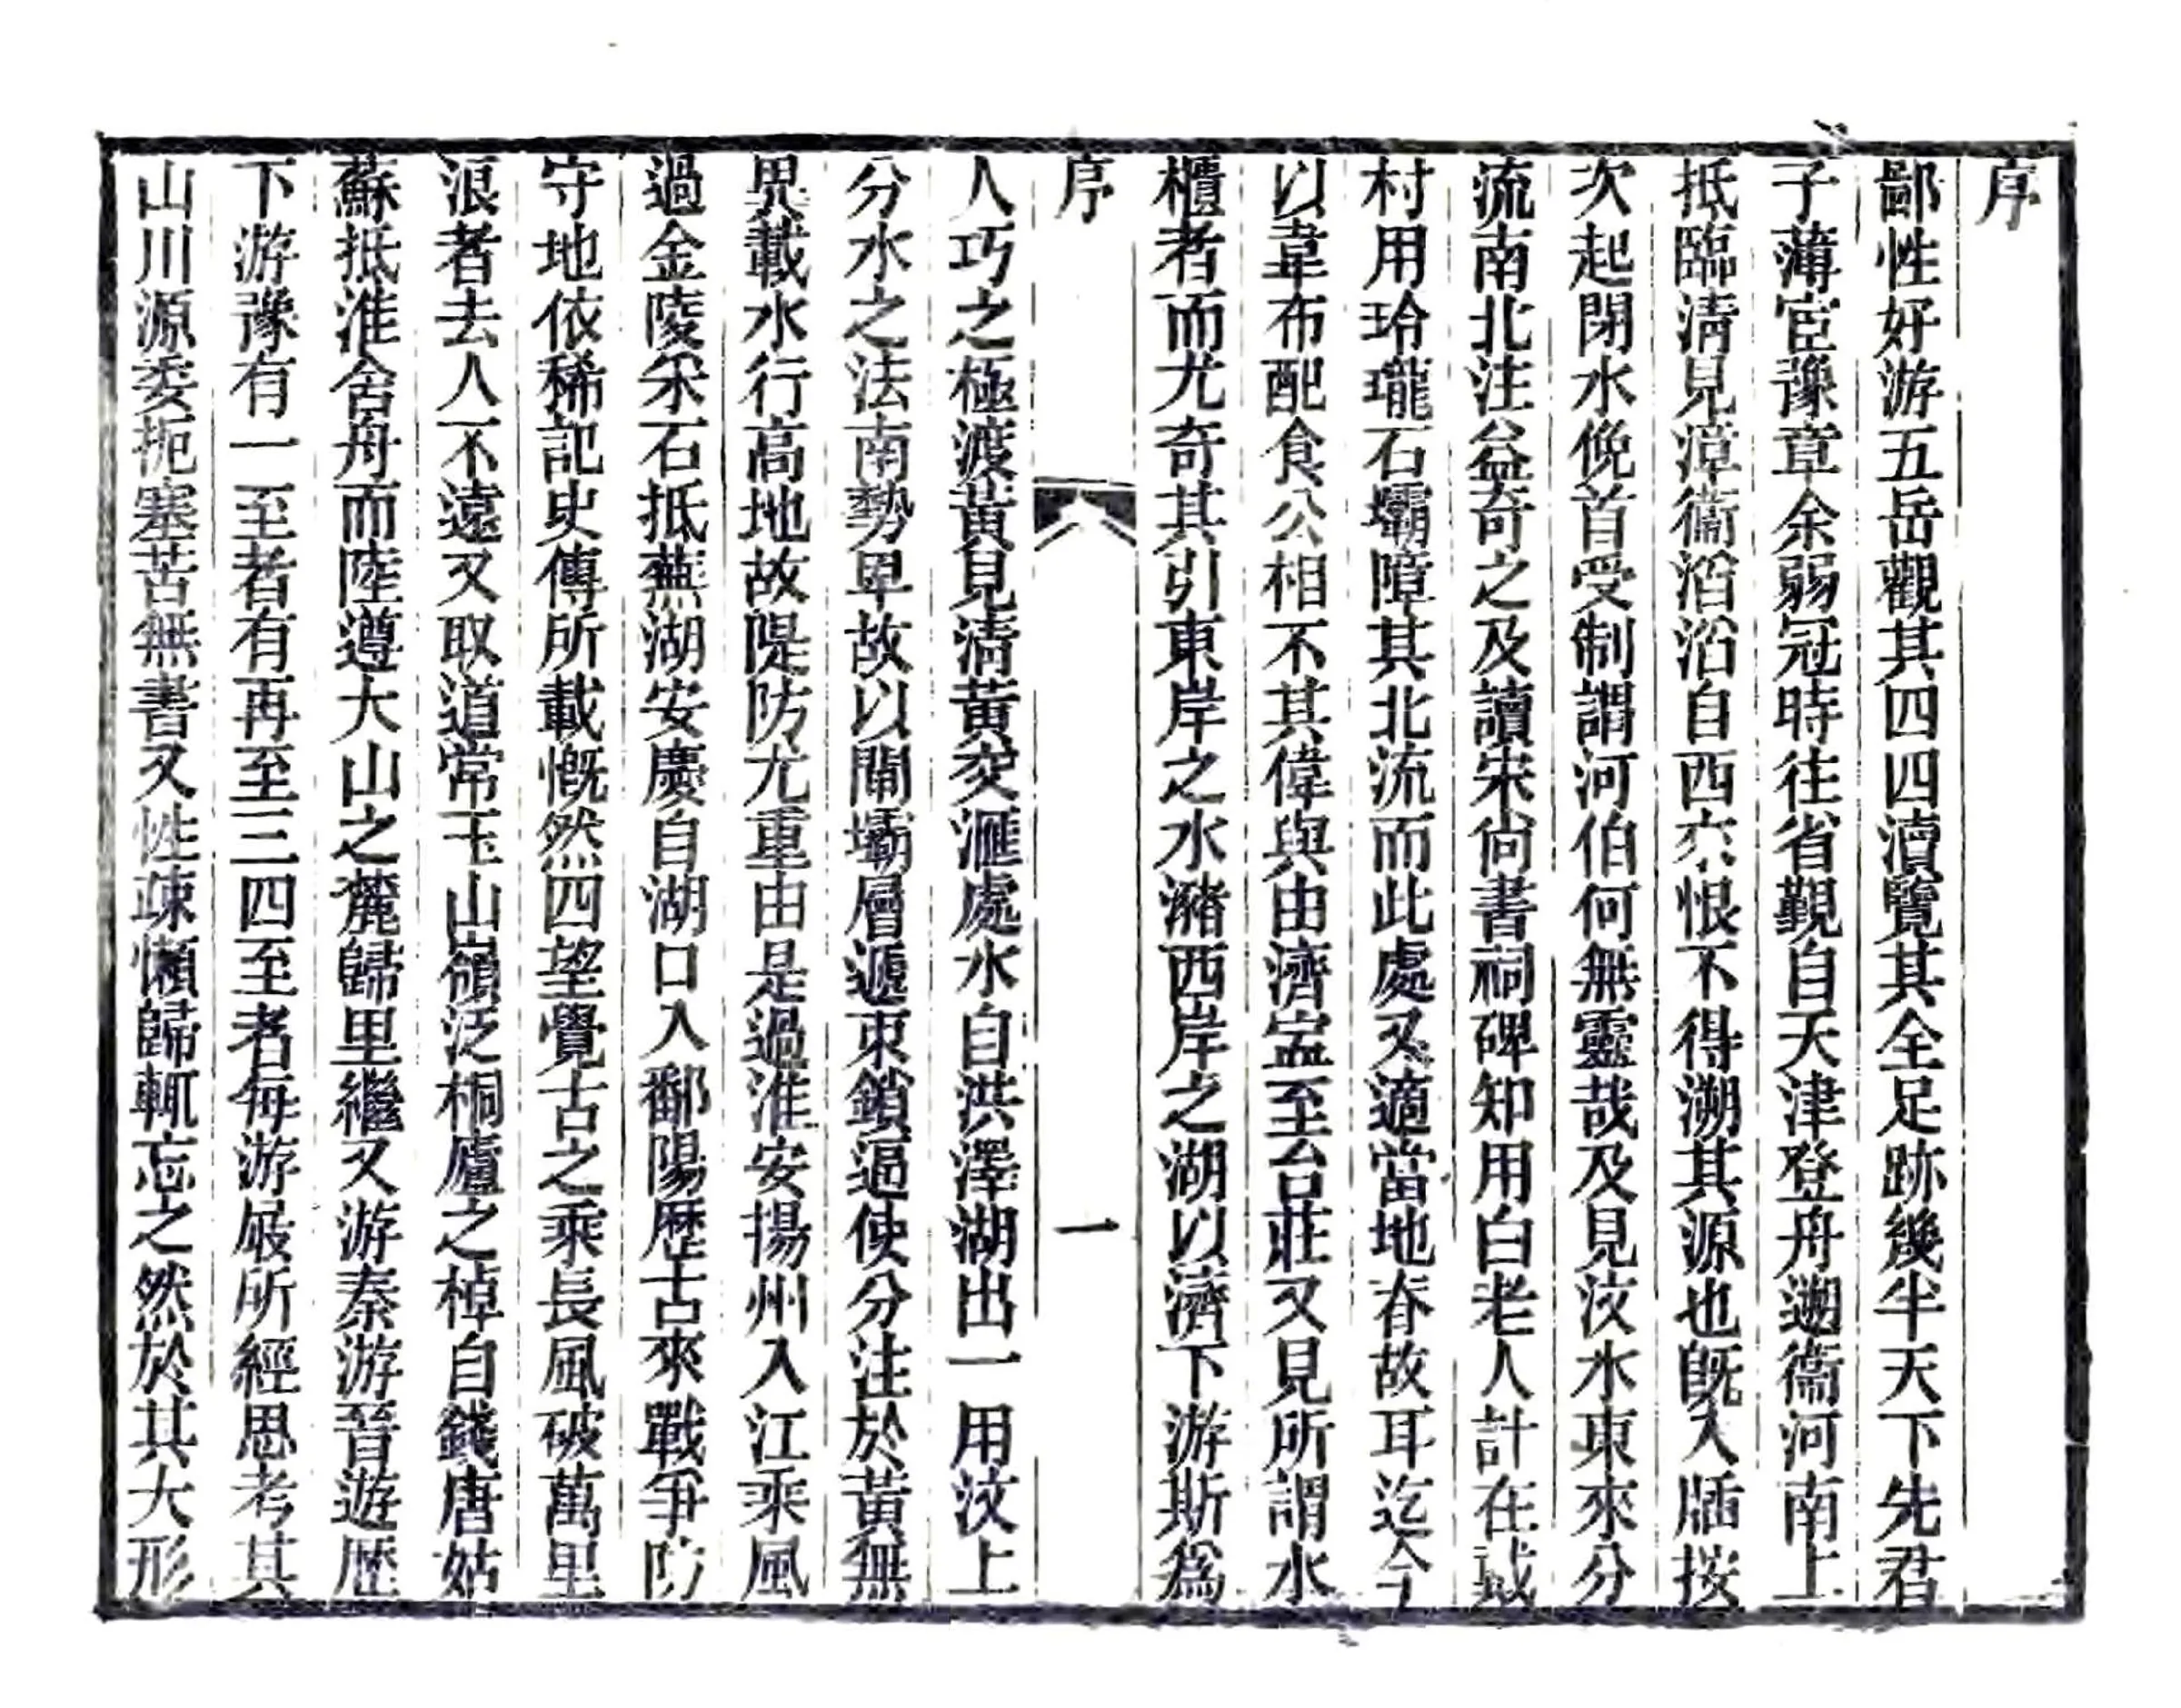 序
鄙性好游五岳觀其四四瀆覽其全足跡幾半天下先君
子薄宦豫章余弱冠時往省覲自天津登舟遡衞河南上
抵臨清見漳衞滔滔自西六恨不得溯其源也旣入牐按
次起閉水俛首受制謂河伯何無靈哉及見汶水東來分
流南北注益奇之及讀宋尙書祠碑知用白老人計在戴
村用玲瓏石壩障其北流而此處又適當地脊故耳迄今
以韋布配食公相不其偉與由濟寍至台莊又見所謂水
櫃者而尤奇其引東岸之水瀦西岸之湖以濟下游斯爲
序
一
人巧之極渡黃見清黃交滙處水自洪澤湖出一用汶上
分水之法南勢卑故以閘壩層遞束鎖逼使分注於黃無
異載水行高地故隄防尤重由是過淮安揚州入江乘風
過金陵采石抵蕪湖安慶自湖口入鄱陽歷古來戰爭防
守地依稀記史傳所載慨然四望覺古之乘長風破萬里
浪者去人不遠又取道常玉山嶺泛桐廬之棹自錢唐姑
蘇抵淮舍舟而陸遵大山之麓歸里繼又游秦游晉遊歷
下游豫有一至者有再至三四至者每游屐所經思考其
山川源委扼塞苦無書又性疎懶歸輒忘之然於其大形